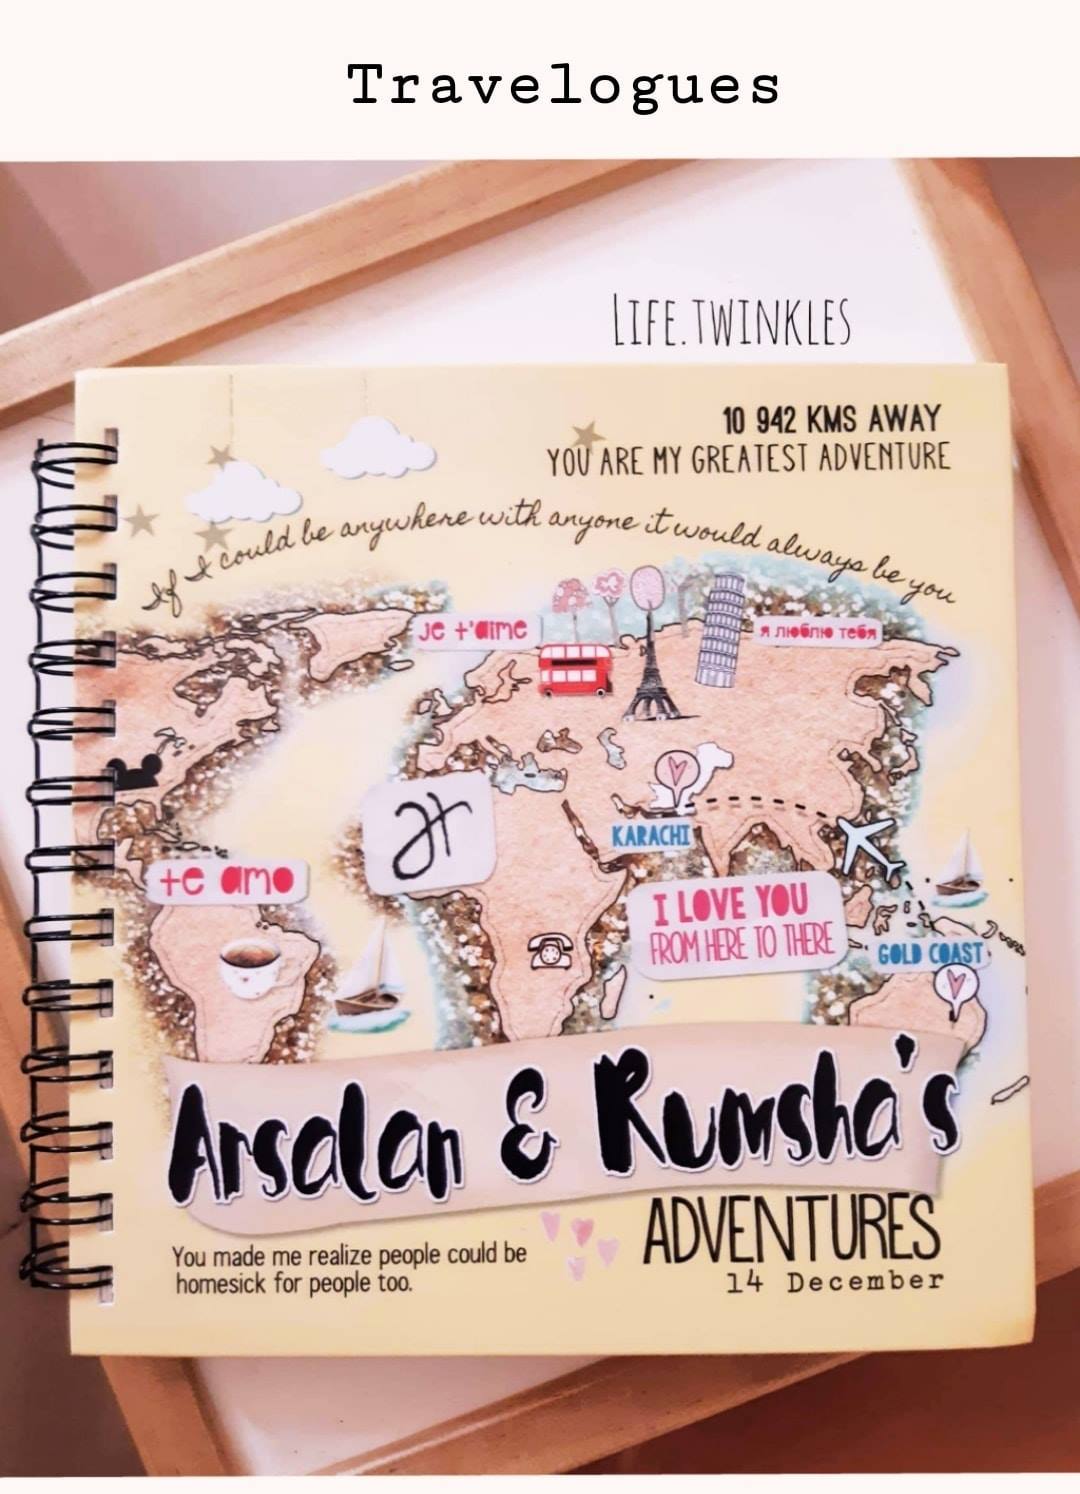 Travelogues
LIFE.TWINKLES
10 942 KMS AWAY
YOU ARE MY GREATEST ADVENTURE
If I could be anywhere with anyone it would always be you
Je t'aime
я люблю тебя
KARACHI
te amo
I LOVE YOU
FROM HERE TO THERE
GOLD COAST
Arsalan & Rumsha's
ADVENTURES
14 December
You made me realize people could be
homesick for people too.